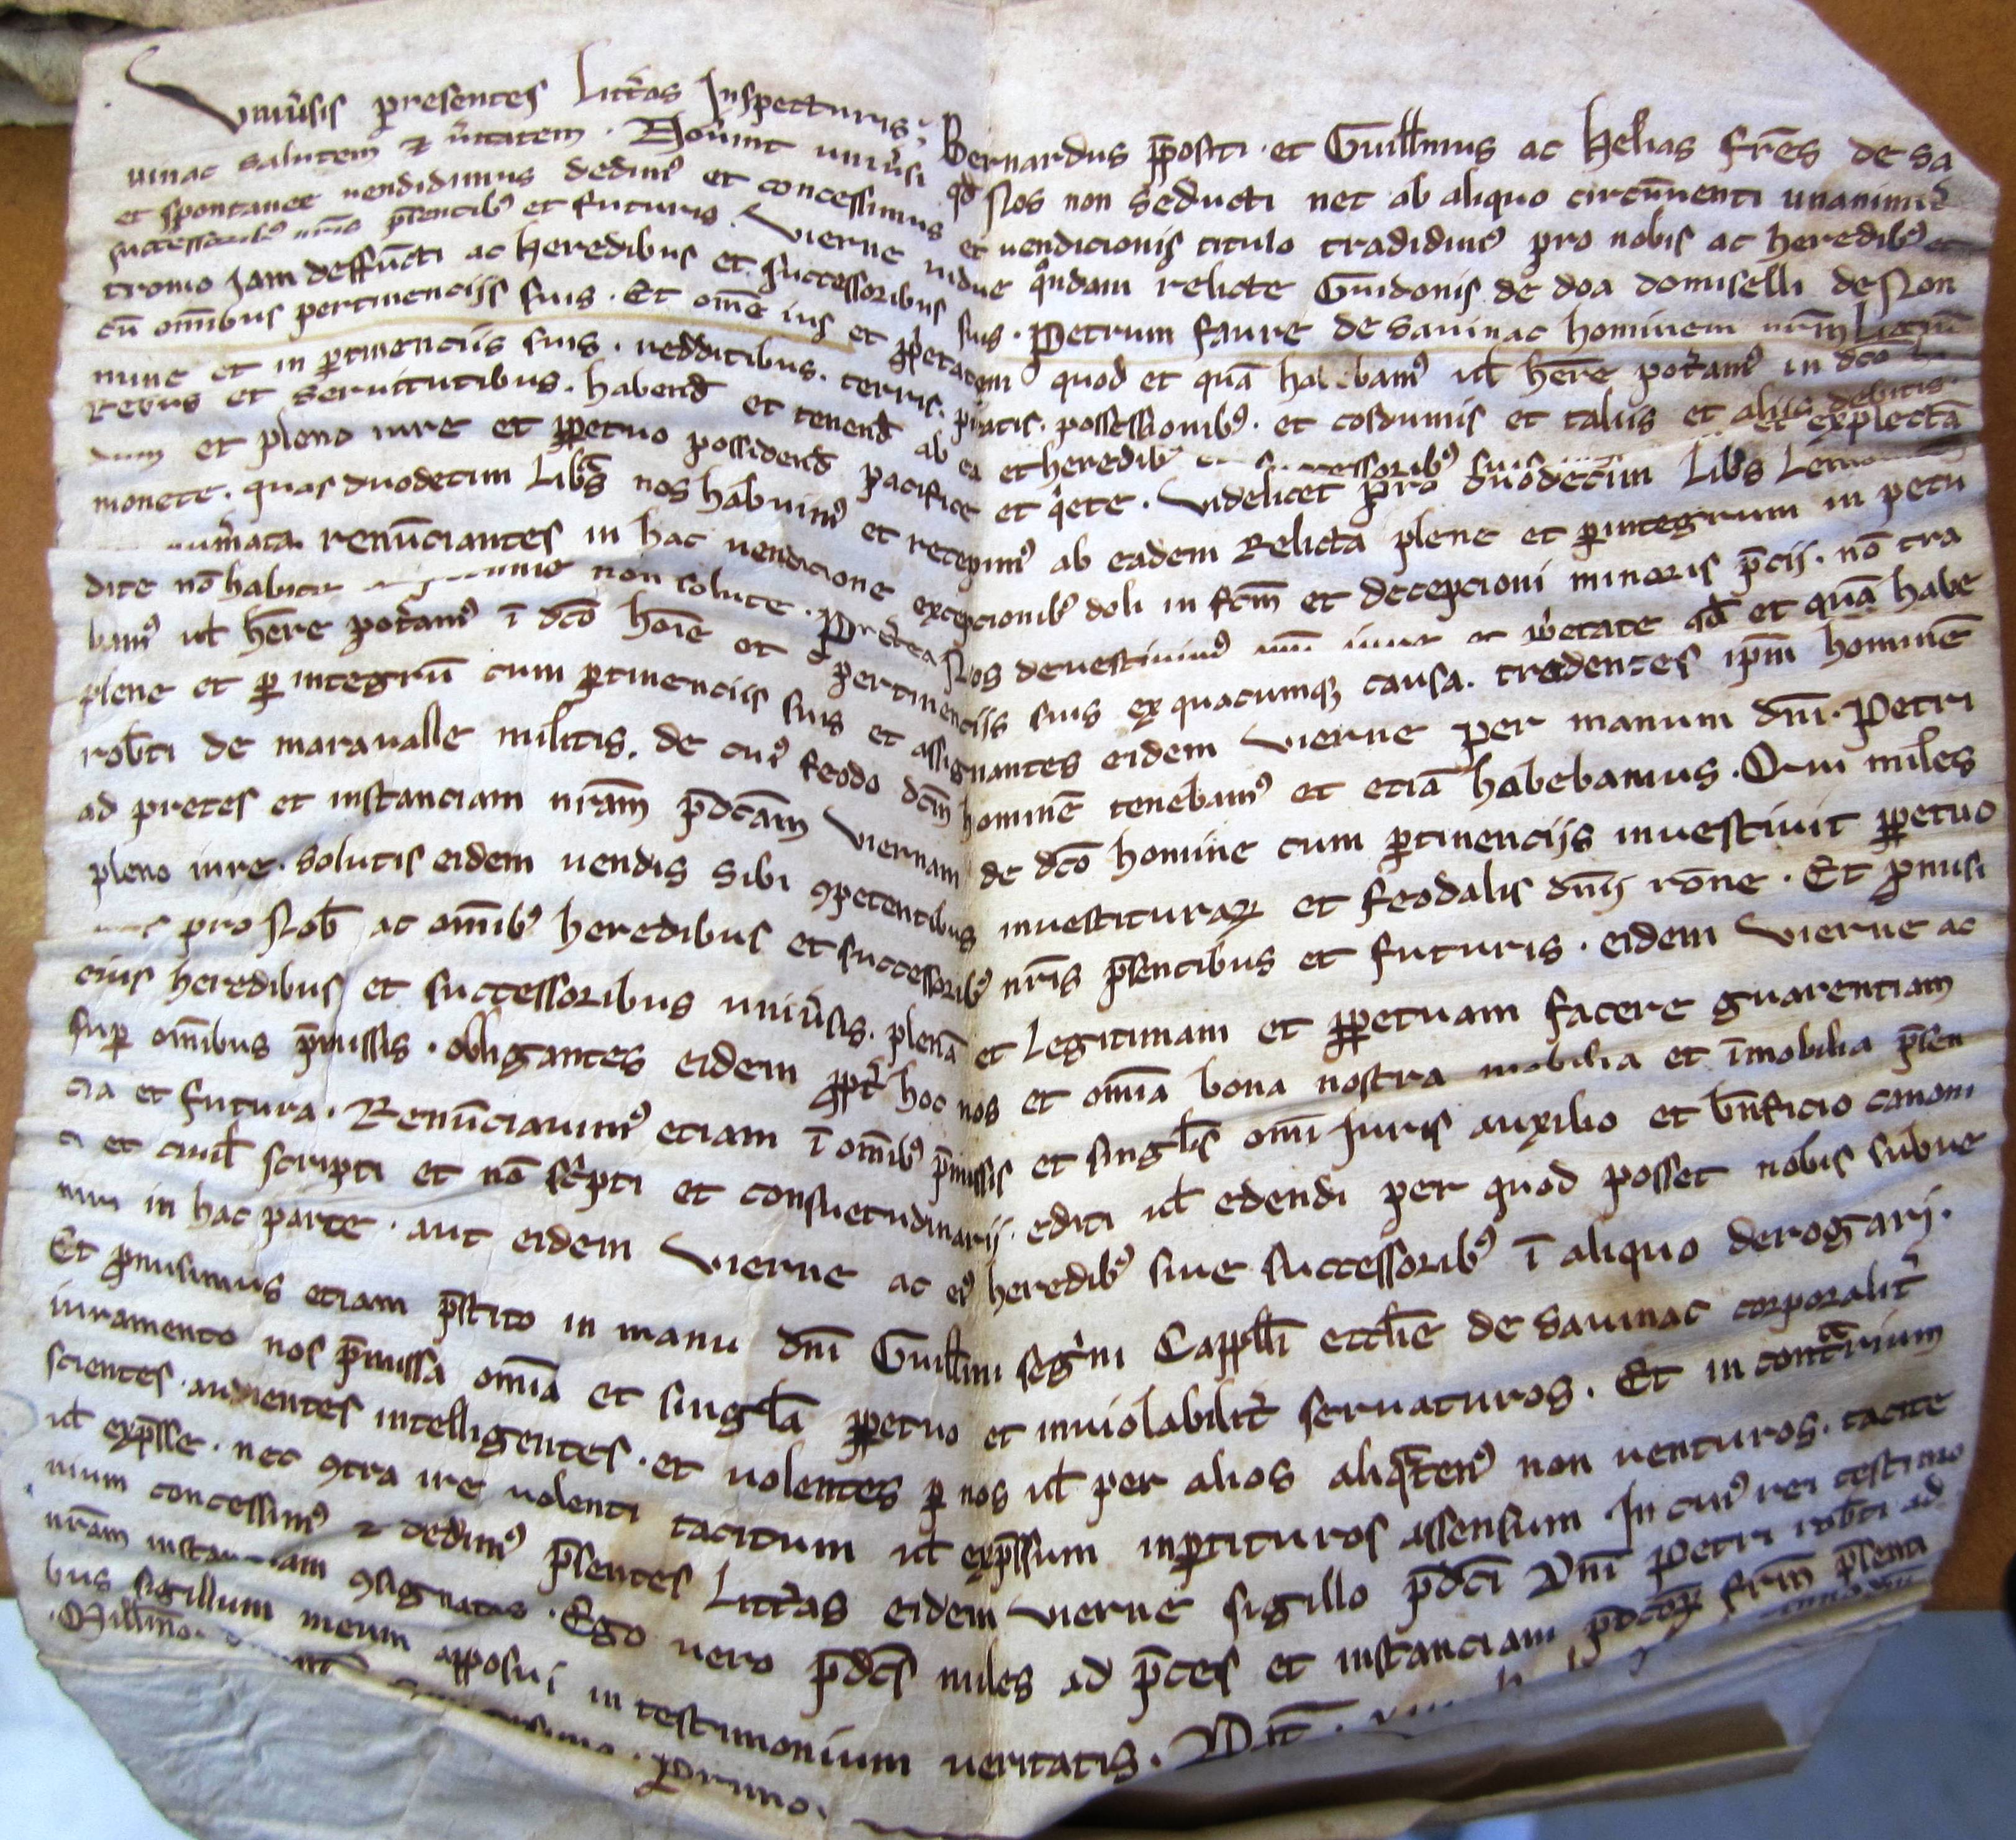 Vniv̾sis presentes litt̾as Inspecturis. Bernardus p̄positi. et Guill̄mus ac helias fr̄es de Sa
uinac salutem ⁊ u̾itatem. Nou̾int uniu̾si qd̄ Nos non seducti nec ab aliquo circūuenti unanimit̾
et spontanee uendidimus dedim⁹ et concessimus et uendicionis titulo tradidim⁹ pro nobis ac heredib⁹ et
successorib⁹ nr̄is p̄sentib⁹ et futuris. Vierne uidue q̊ndam relicte Guidonis de doa domiselli de Non
tronio Jam deffūcti ac heredibus et successoribus suis. Petrum faure de Sauinac hominem nr̄m ligiū
cū om̄ibus pertinenciis suis. Et om̄e ius et ꝓp̾etatem quod et quā habebam⁹ ul̄ hēre pot̾am⁹ in dc̄o
mine et in ꝑtinenciis suis. redditibus. terris. pratis. possessionib⁹. et cosdumis et taliis et aliis debitis
rebus et seruitutibus. habend̄ et tenend̄ ab ea et heredib⁹ successorib⁹ suis et explectā
dum et pleno iure et ꝑpetuo possidend̄ pacifice et q̾ete. Videlicet pro duodecim libr̄s
monete. quas duodecim libr̄s nos habuim⁹ et recepim⁹ ab eadem Relicta plene et ꝑ integrum in pecu
nūmata renūciantes in hac uendicione excepcionib⁹ doli in fcm̄ et decepcioni minoris p̄cii. nō tra
dite nō habite non solute. Pret̾ea Nos deuestiuim⁹ iure et ꝓp̾etate qd̄ et quā habe
bam⁹ ul̄ hēre pot̾am⁹ ī dc̄o hoīe et pertinenciis suis ex quacumqꝫ causa. tradentes ip̄m hominē
plene et ꝑ integrū cum ꝑtinenciis suis et assignantes eidem Vierne per manum dn̄i. Petri
rob̄ti de maraualle militis. de cui⁹ feodo dcm̄ hominē tenebam⁹ et etiā habebamus. Qui miles
ad preces et instanciam nr̄am p̄dcām Viernam de dc̄o homine cum ꝑtinenciis inuestiuit ꝑpetuo
pleno iure. solutis eidem uendis sibi ꝯpetentibus inuestiturarꝫ et feodalis dn̄ii rōne. Et ꝓmisi
pro Nob̄ ac om̄ib⁹ heredibus et successorib⁹ nr̄is p̄sentibus et futuris. eidem Vierne ac
eius heredibus et successoribus uniu̾sis. plenā et legitimam et ꝑpetuam facere guarentiam
suꝑ om̄ibus p̄missis. obligantes eidem ꝓpt̾ hoc nos et om̄ia bona nostra mobilia et īmobilia p̄sen
cia et futura. Renūciauim⁹ etiam ī om̄ib⁹ p̄missis et singl̄is om̄i Juris auxilio et bn̄ficio canoni
ci et ciuil̄ scripti et nō sc̾pti et consuetudinarii. editi ul̄ edendi per quod posset nobis subue
niri in hac parte. aut eidem Vierne ac ei⁹ heredib⁹ siue successorib⁹ ī aliquo derogari.
Et ꝓmisimus etiam p̄stito in manu dn̄i Guill̄mi seg̾ni Cappll̄i eccl̄ie de Sauinac corporalit̾
iuramento nos p̄missa om̄ia et singl̄a ꝑpetuo et inuiolabilit̾ seruaturos. Et in contrarium
scientes. audientes intelligentes. et uolentes ꝑ nos ul̄ per alios aliq̾ten⁹ non uenturos. tacite
ul̄ exp̄sse. nec ꝯtra ire uolenti tacitum ul̄ exp̄ssum inꝑtituros assensum. In cui⁹ rei testimo
nium concessim⁹ ⁊ dedim⁹ p̄sentes litt̾as eidem Vierne sigillo p̄dc̄i Dn̄i Petri rob̄ti ad
nr̄am instanciam ꝯsignatas. Ego uero p̄dc̄s miles ad p̄ces et instanciam p̄dcōꝝ fr̄m p̄senti
bus sigillum meum apposui in testimonium ueritatis. Dat̄.
Mill̄imo. primo.